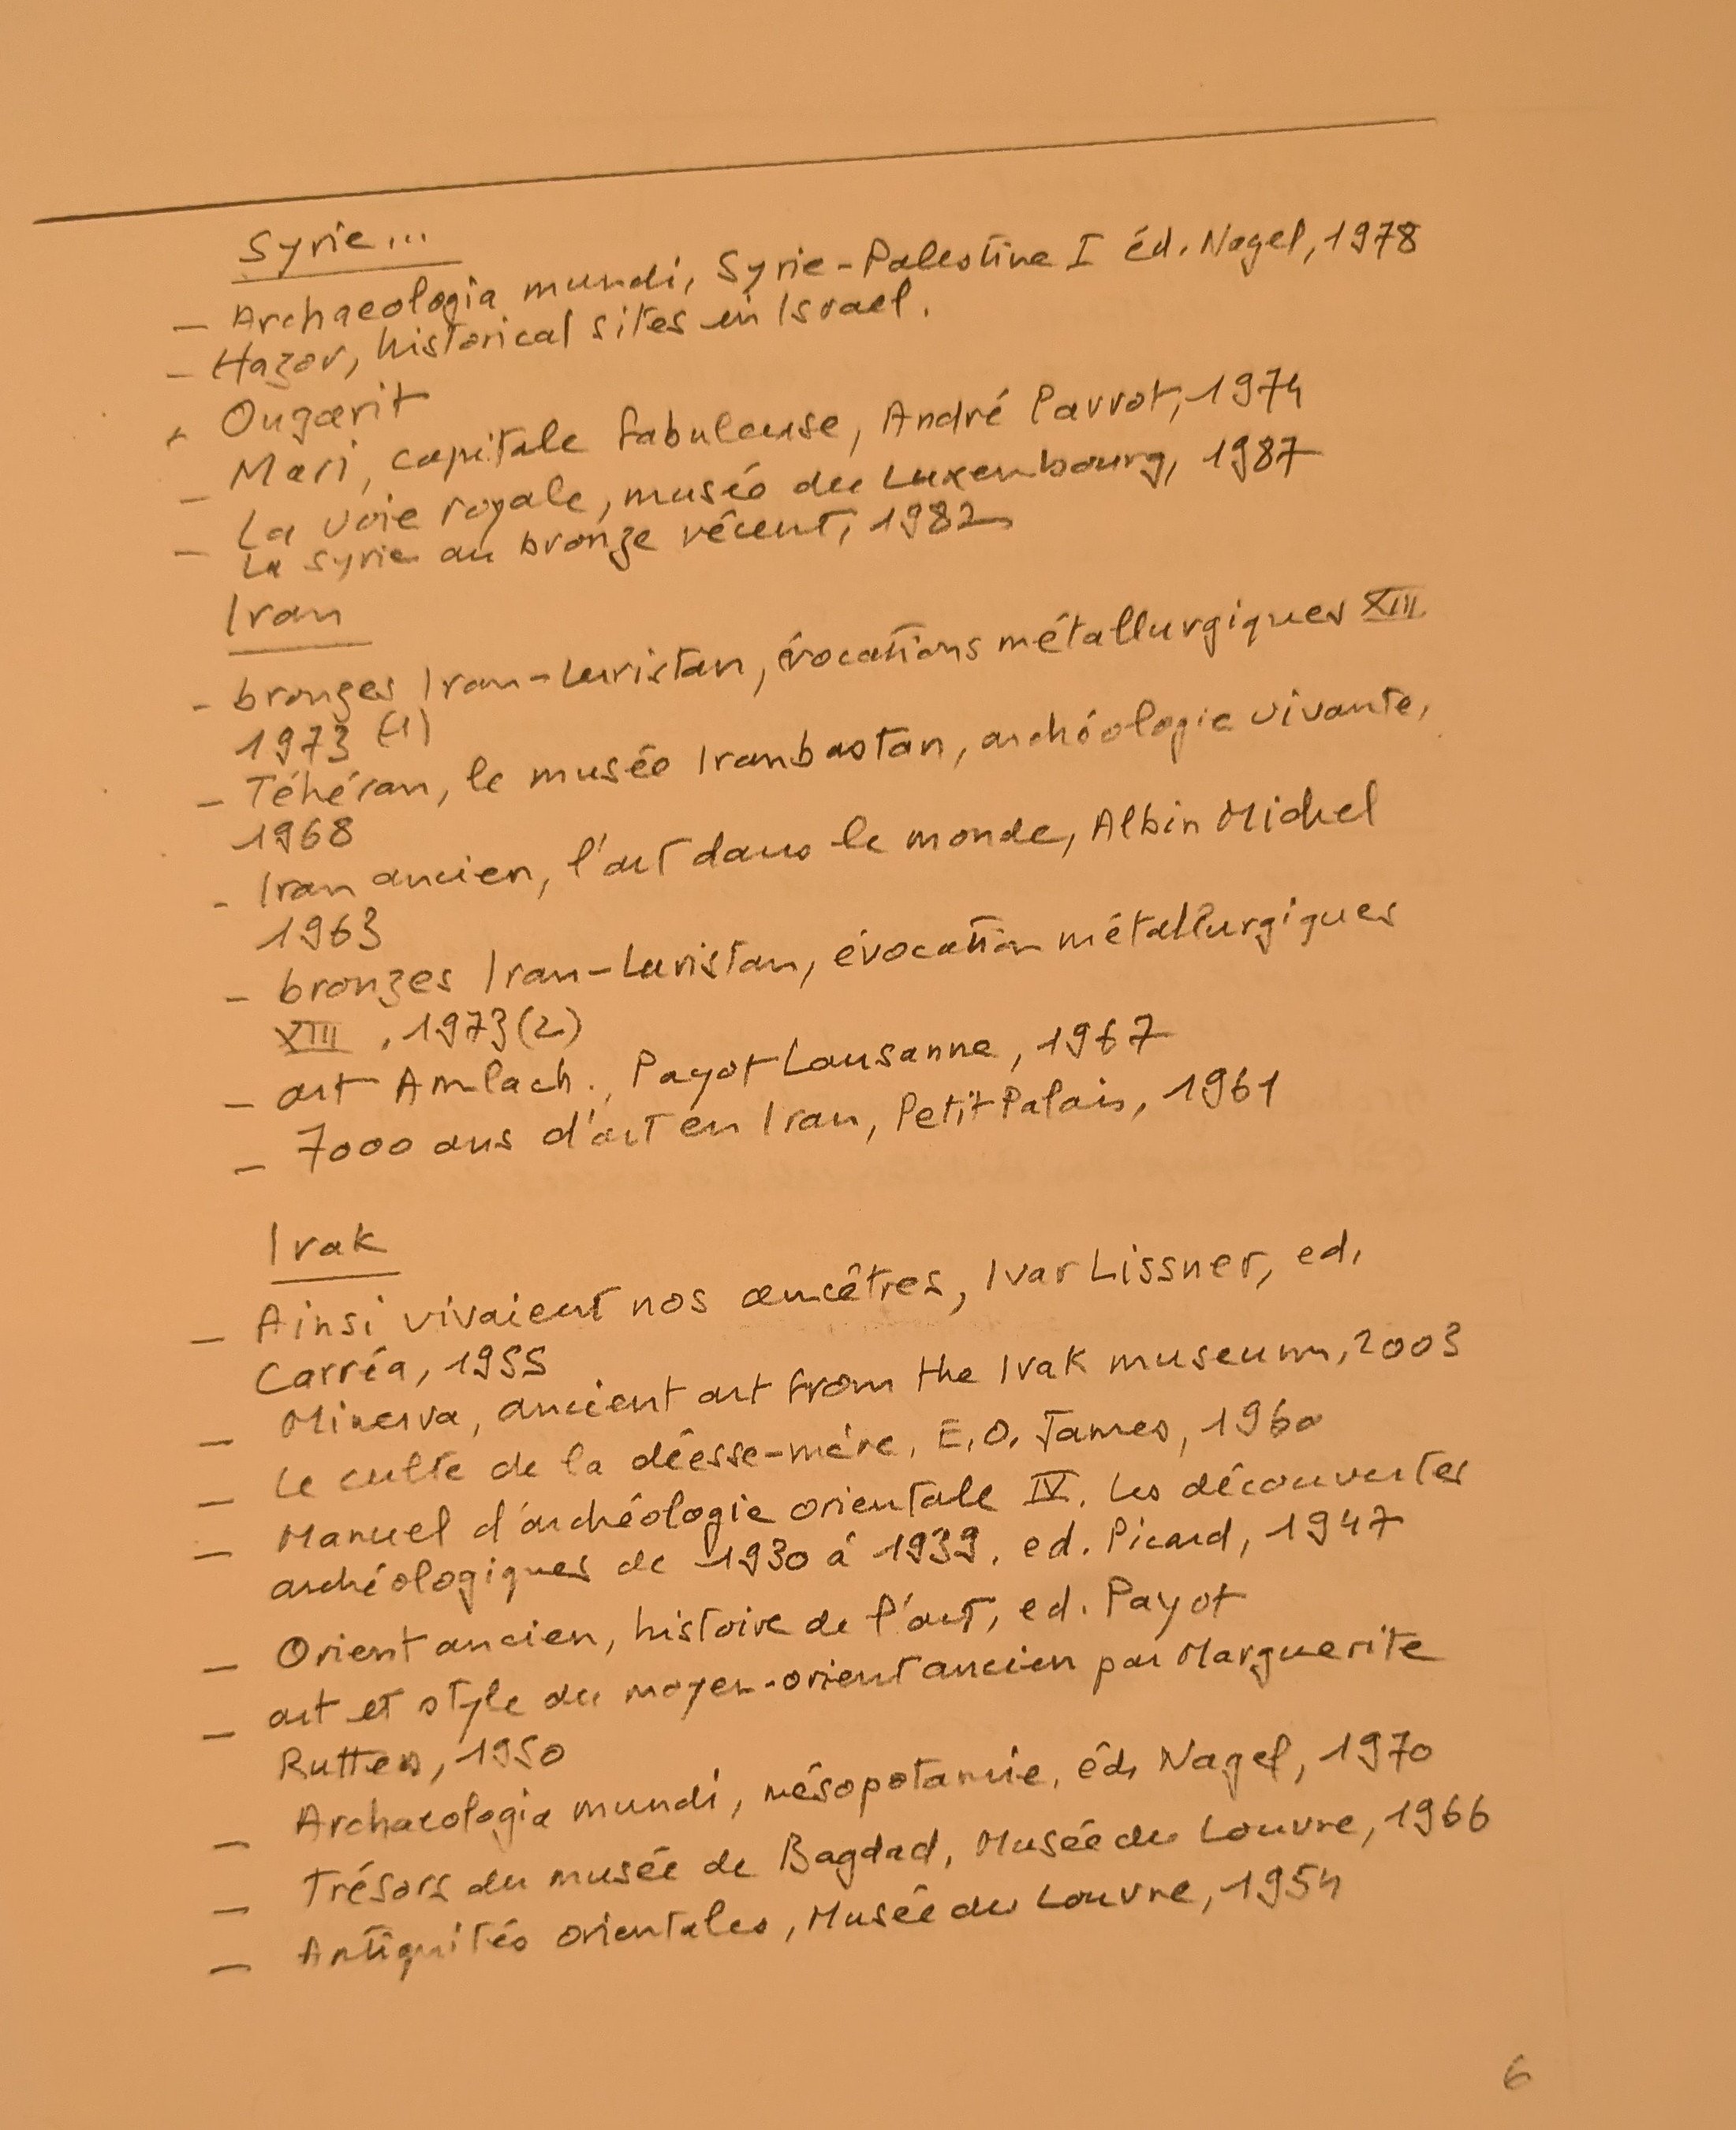 Syrie...
- Archaeologia mundi, Syrie-Palestine I éd. Nagel, 1978
- Hazor, historical sites in Israel.
- Ougarit
- Mari, capitale fabuleuse, André Parrot, 1974
- La voie royale, musée du Luxembourg, 1987
La syrie au bronze récent, 1982
Iran
- bronzes Iran-Luristan, évocations métallurgiques XIII
1973 (1)
- Téhéran, le musée Iranbastan, archéologie vivante,
1968
- Iran ancien, l'art dans le monde, Albin Michel
1963
- bronzes Iran-Luristan, évocation métallurgiques
XIII, 1973 (2)
- art Amlach., Payot Lausanne, 1967
- 7000 ans d'art en Iran, Petit Palais, 1961
Irak
- Ainsi vivaient nos ancêtres, Ivar Lissner, ed.
Corréa, 1955
- Minerva, ancient art from the Irak museum, 2003
- Le culte de la déesse-mère, E.O. James, 1960
- Manuel d'archéologie orientale IV. Les découvertes
archéologiques de 1930 à 1939, ed. Picard, 1947
- Orient ancien, histoire de l'art, ed. Payot
- art et style du moyen-orient ancien par Marguerite
Rutten, 1950
- Archaeologia mundi, mésopotamie, éd. Nagel, 1970
- Trésors du musée de Bagdad, Musée du Louvre, 1966
- Antiquités orientales, Musée du Louvre, 1954
6